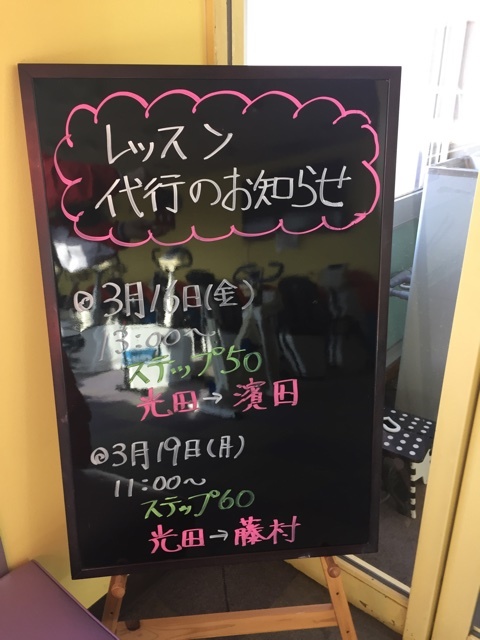 レッスン
代行のお知らせ
◎3月16日(金)
13:00〜
ステップ50
光田→濱田
◎3月19日(月)
11:00〜
ステップ60
光田→藤村